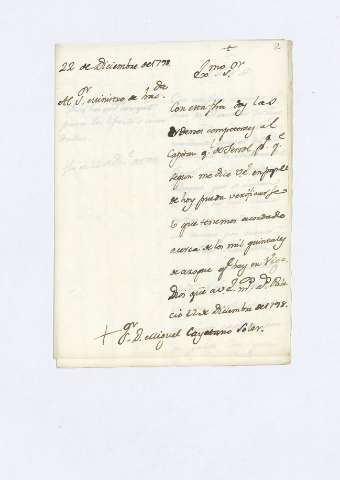 2
22 de Diciembre de 1798
Exmo. Sr.
Al Sr. Ministro de Hacda.
Con esta fha doy las
ordenes competentes al
Capitan gl. de Ferrol pa. qe.
segun me dice V.E. en papel
de hoy pueda verificarse
lo que tenemos acordado
acerca de los mil quintales
de azogue qe. hay en Vigo.
Dios gue. a V.E. ms. as. Pala
cio 22 de Diciembre de 1798.
Sr. D. Miguel Cayetano Soler.